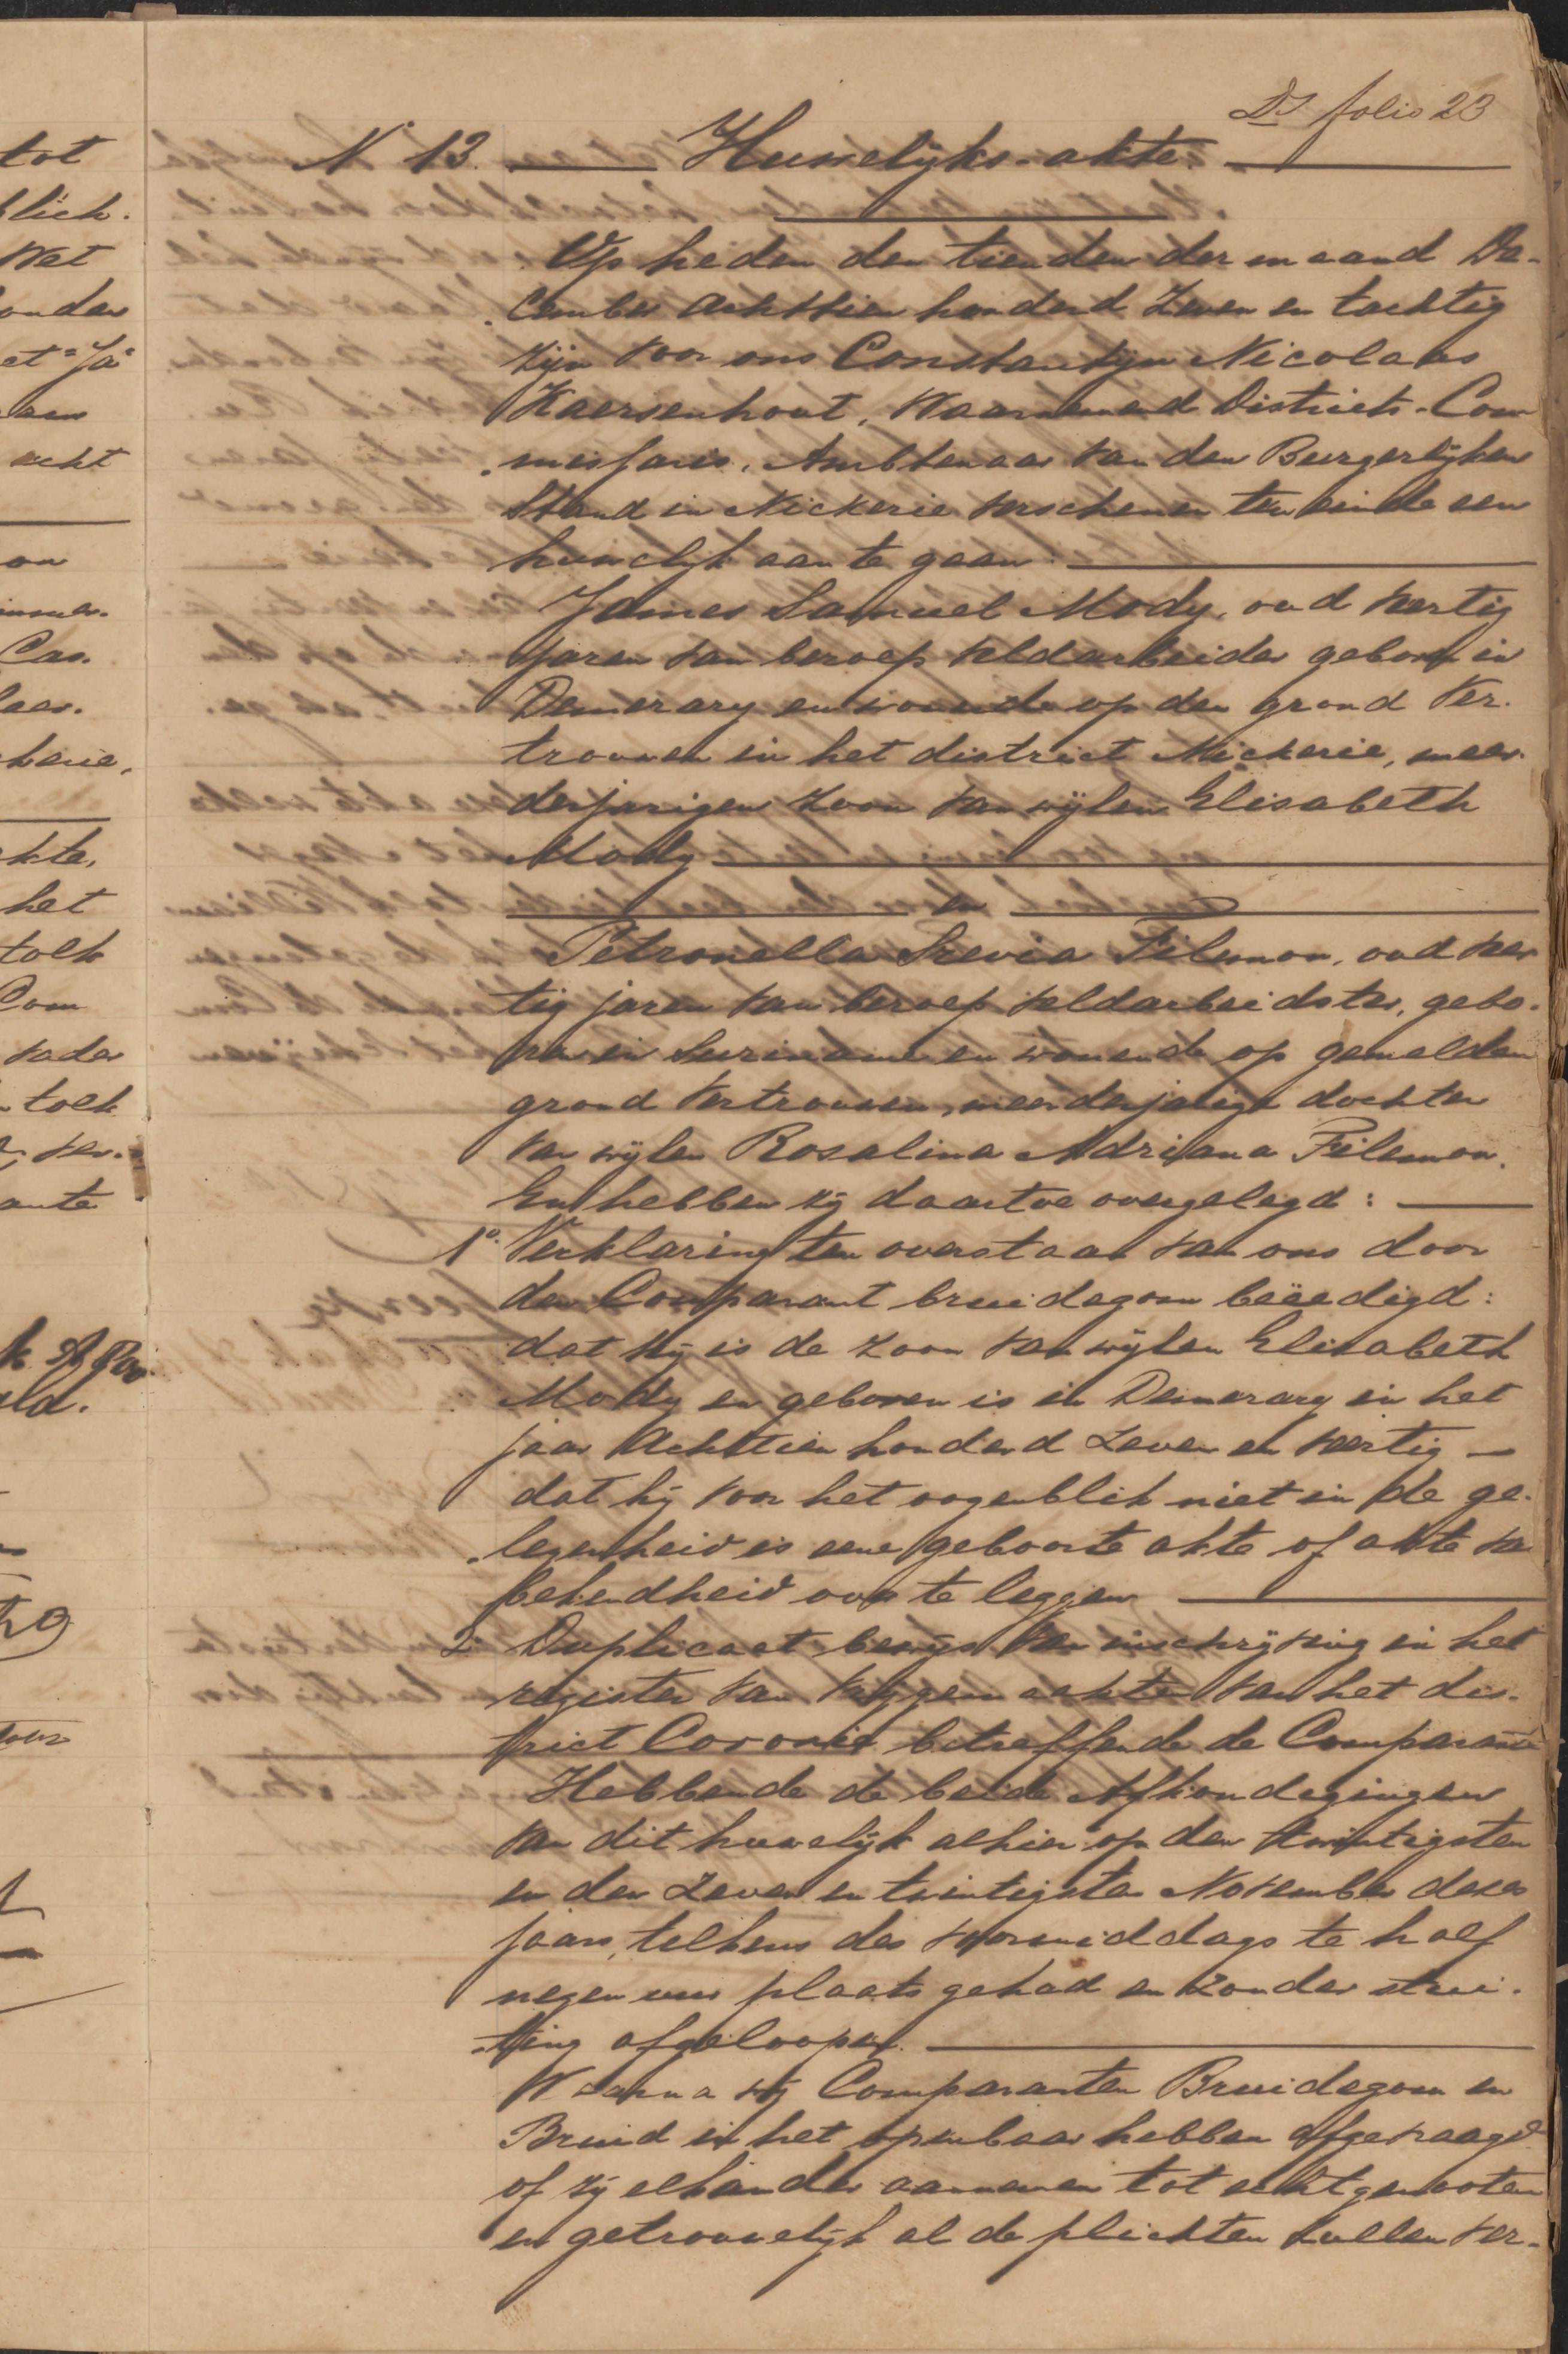 folio 23
N° 13. Huwelijks-akte.
Op heden den tienden der maand De-
cember achttien honderd zeven en tachtig
zijn voor ons Constantijn Nicolaas
Kaersenhout, Waarnemend Districts-Com
missaris, Ambtenaar van den Burgerlijken
Stand in Nickerie verschenen ten einde een
huwelijk aan te gaan:
James Samuel Mody, oud veertig
jaren van beroep veldarbeider geboren in
Demerary en wonende op den grond Ver-
trouwen in het district Nickerie, meer-
derjarigen zoon van wijlen Elisabeth
Mody
en
Petronella Filemon, oud veer
tig jaren van beroep veldarbeidster, gebo-
ren in Suriname en wonende op gemelden
grond Vertrouwen, meerderjarige dochter
van wijlen Rosalina Adriana Filemon.
En hebben zij daartoe overgelegd:
1° Verklaring ten overstaan van ons door
den Comparant bruidegom beëedigd:
dat hij is de zoon van wijlen Elisabeth
Mody en geboren is in Demerary in het
jaar Achttien honderd zeven en veertig —
dat hij voor het oogenblik niet in de ge-
legenheid is eene geboorte akte of akte van
bekendheid over te leggen
2° Duplicaat bewijs van inschrijving in het
register van vrijgemaakten van het dis-
trict Coronie betreffende de Comparante
Hebbende de beide Afkondigingen
van dit huwelijk alhier op den twintigsten
en den zeven en twintigsten November dezes
jaars, telkens des voormiddags te half
negen uur plaats gehad en zonder stui-
ting afgeloopen.
Waarna wij Comparanten Bruidegom en
Bruid in het openbaar hebben afgevraagd
of zij elkander aannemen tot echtgenooten
en getrouwelijk al de plichten zullen ver-
tot
blick.
Wet
onder
et "Ja"
acht
Cas.
kte,
het
tolk
Com
vader
tolk
ver-
ante